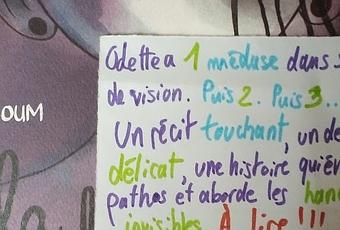 OUM
Odette a 1 méduse dans s
de vision. Puis 2. Puis 3...
Un récit touchant, un de
délicat, une histoire qui év
pathos et aborde les han
invisibles. À lire !!!